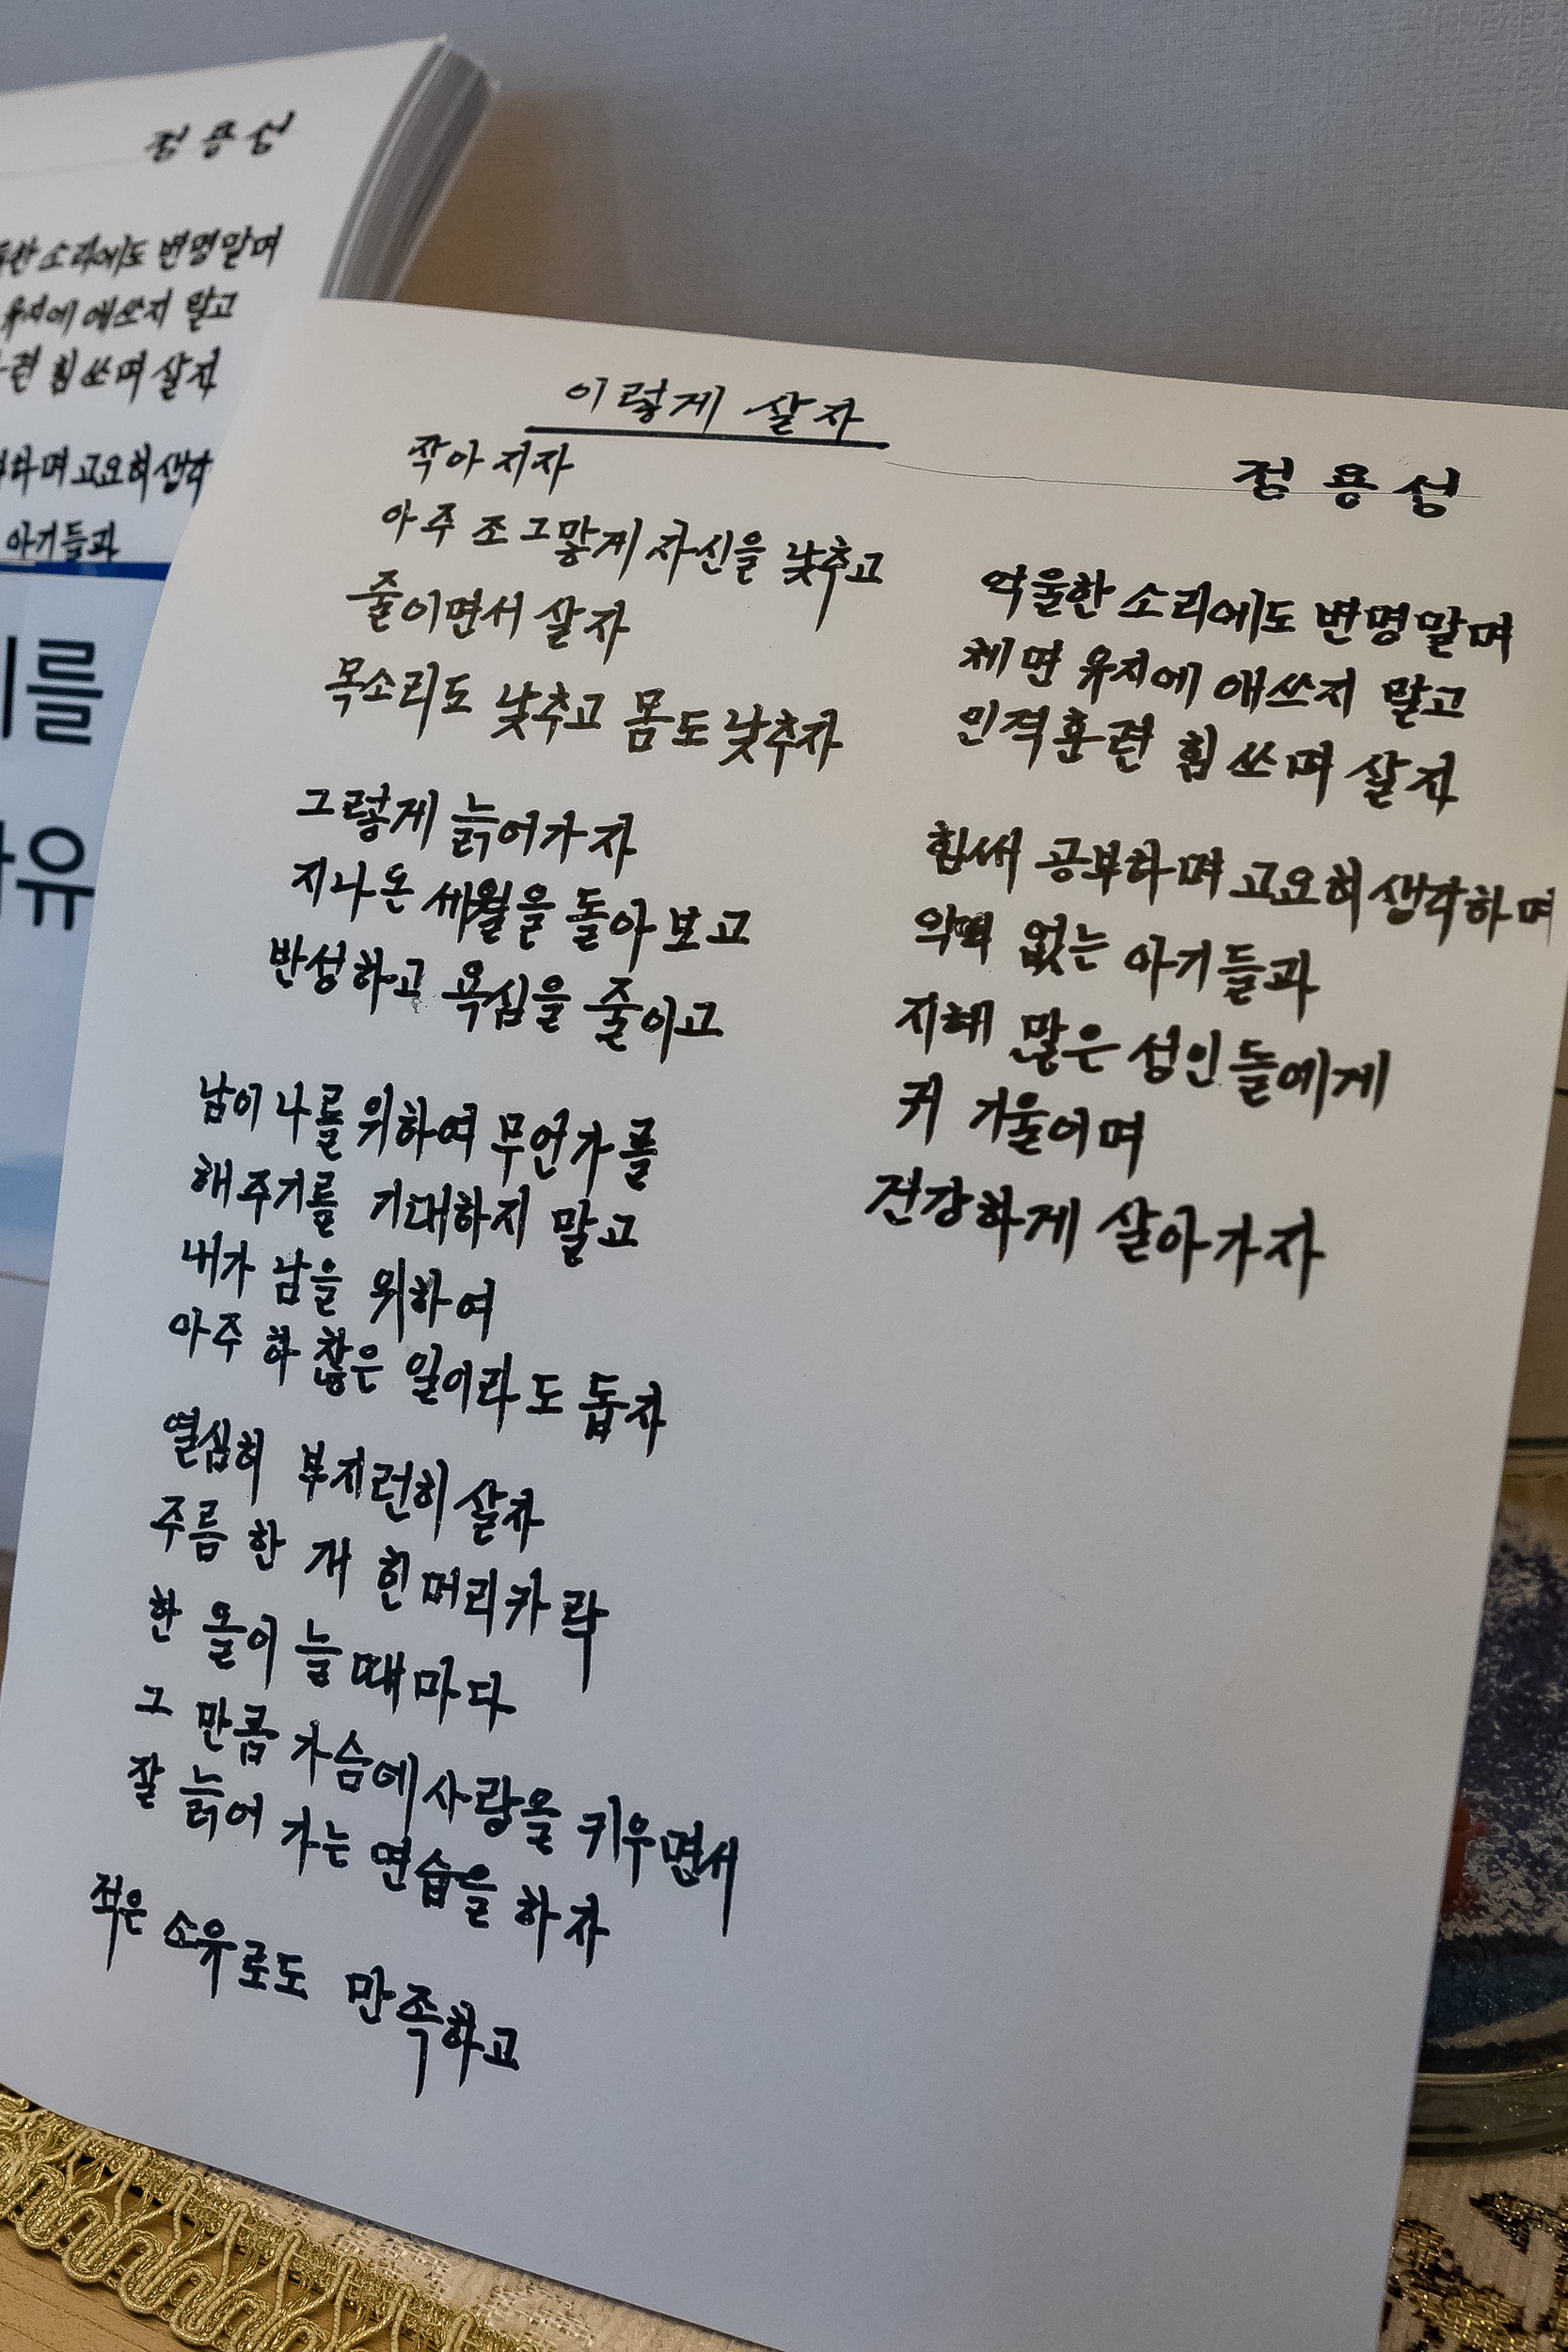 정용성
소리에도 변명말며
유지에 애쓰지 말고
련 힘쓰며 살자
하며 고요히 생각
아기들과
를
유
이렇게 살자
정용성
작아지자
아주 조그맣게 자신을 낮추고
줄이면서 살자
목소리도 낮추고 몸도 낮추자
그렇게 늙어가자
지나온 세월을 돌아보고
반성하고 욕심을 줄이고
남이 나를 위하여 무언가를
해주기를 기대하지 말고
내가 남을 위하여
아주 하찮은 일이라도 돕자
열심히 부지런히 살자
주름 한 개 흰머리카락
한 올이 늘때마다
그 만큼 가슴에 사랑을 키우면서
잘 늙어 가는 연습을 하자
적은 소유로도 만족하고
억울한 소리에도 변명말며
체면 유지에 애쓰지 말고
인격훈련 힘쓰며 살자
힘써 공부하며 고요히 생각하며
악때 없는 아기들과
지혜 많은 성인들에게
귀 기울이며
건강하게 살아가자